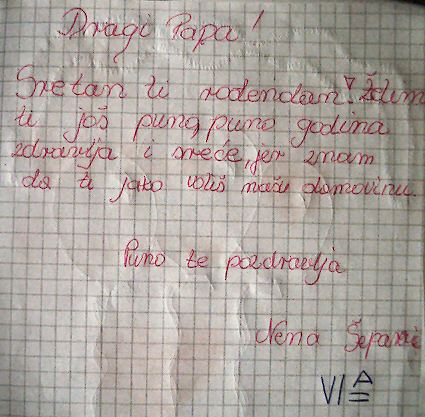 Dragi Papa!
Sretan ti rođendan! Želim
ti još puno, puno godina
zdravlja i sreće, jer znam
da ti jako voliš našu domovinu.
Puno te pozdravlja
Nena
VI A